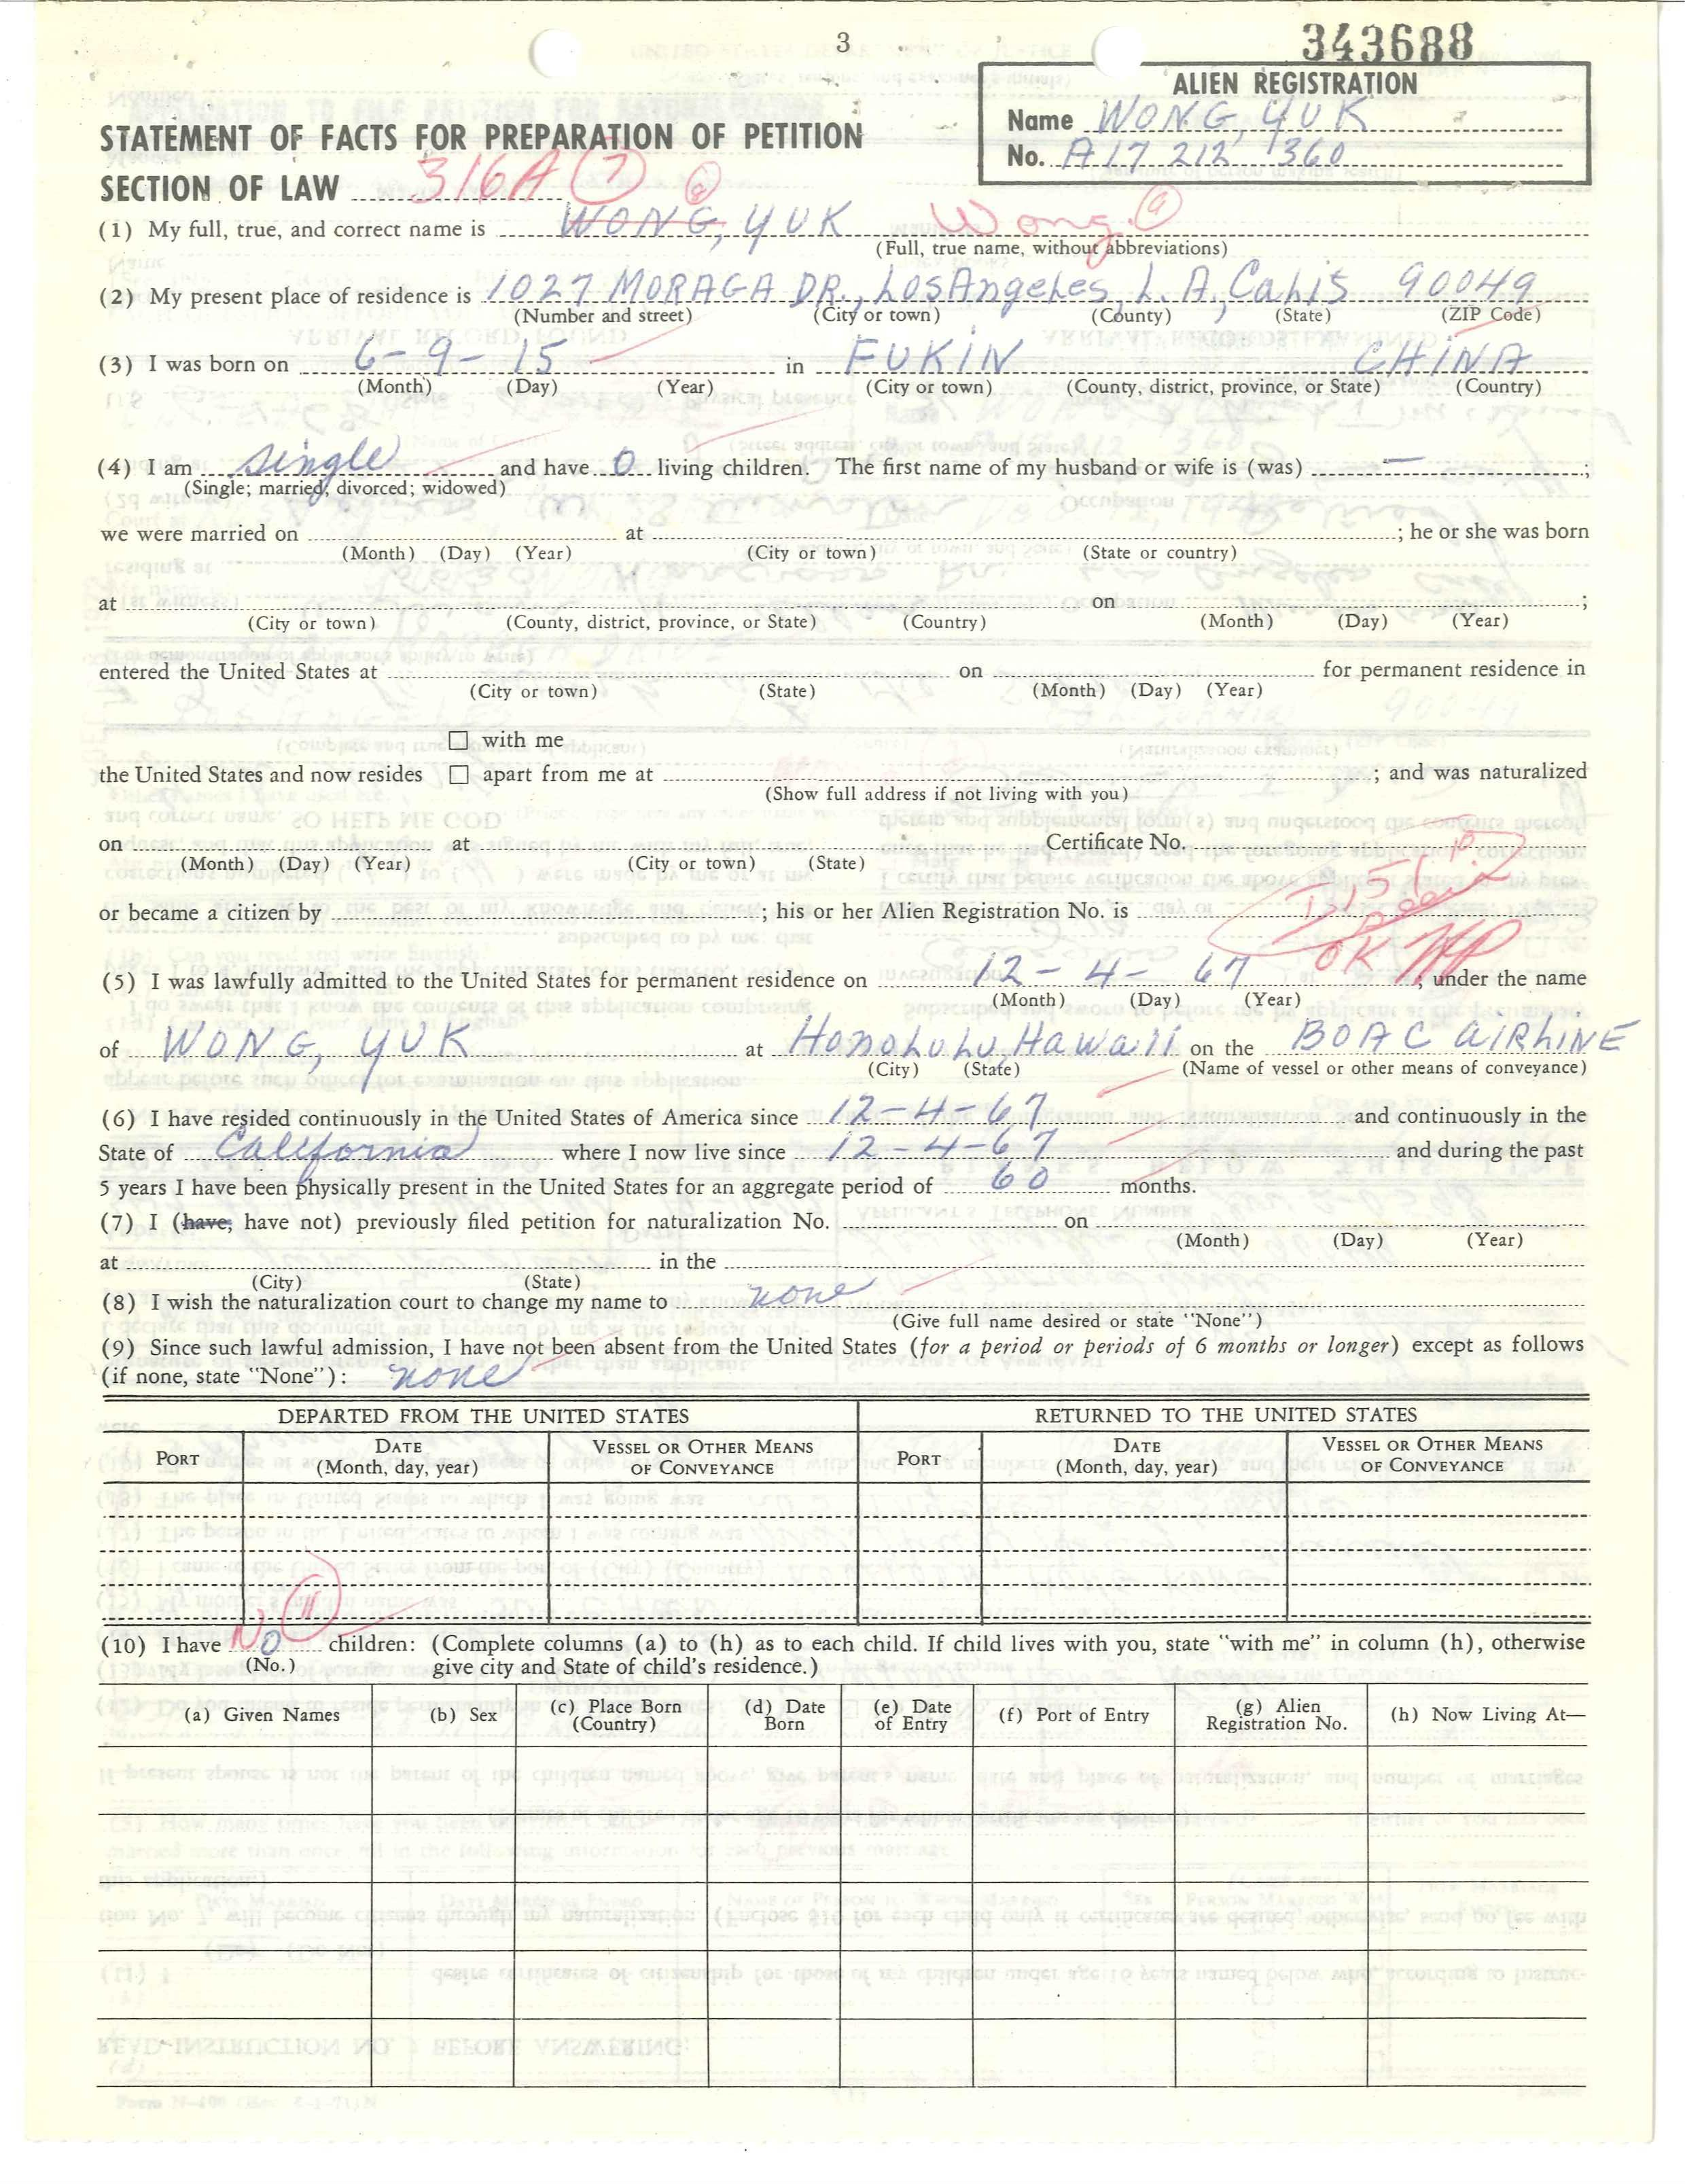 3
343688
ALIEN REGISTRATION
Name WONG, YUK
No. A17 212 360
STATEMENT OF FACTS FOR PREPARATION OF PETITION
SECTION OF LAW 316A (7)
(1) My full, true, and correct name is WONG, YUK Wong.
(Full, true name, without abbreviations)
(2) My present place of residence is 1027 MORAGA DR., LosAngeles, L. A., Calis 90049
(Number and street) (City or town) (County) (State) (ZIP Code)
(3) I was born on 6-9-15 in FUKIN CHINA
(Month) (Day) (Year) (City or town) (County, district, province, or State) (Country)
(4) I am single and have 0 living children. The first name of my husband or wife is (was) — ;
(Single; married; divorced; widowed)
we were married on at ; he or she was born
(Month) (Day) (Year) (City or town) (State or country)
at on ;
(City or town) (County, district, province, or State) (Country) (Month) (Day) (Year)
entered the United States at on for permanent residence in
(City or town) (State) (Month) (Day) (Year)
☐ with me
the United States and now resides ☐ apart from me at ; and was naturalized
(Show full address if not living with you)
on at Certificate No.
(Month) (Day) (Year) (City or town) (State)
or became a citizen by ; his or her Alien Registration No. is
OK
(5) I was lawfully admitted to the United States for permanent residence on 12-4-67, under the name
(Month) (Day) (Year)
of WONG, YUK at Honolulu, Hawaii on the BOAC AIRLINE
(City) (State) (Name of vessel or other means of conveyance)
(6) I have resided continuously in the United States of America since 12-4-67 and continuously in the
State of California where I now live since 12-4-67 and during the past
5 years I have been physically present in the United States for an aggregate period of 60 months.
(7) I (have, have not) previously filed petition for naturalization No. on
(Month) (Day) (Year)
at in the
(City) (State)
(8) I wish the naturalization court to change my name to none
(Give full name desired or state "None")
(9) Since such lawful admission, I have not been absent from the United States (for a period or periods of 6 months or longer) except as follows
(if none, state "None"): none
DEPARTED FROM THE UNITED STATES RETURNED TO THE UNITED STATES
PORT DATE (Month, day, year) VESSEL OR OTHER MEANS OF CONVEYANCE PORT DATE (Month, day, year) VESSEL OR OTHER MEANS OF CONVEYANCE
(11)
(10) I have No children: (Complete columns (a) to (h) as to each child. If child lives with you, state "with me" in column (h), otherwise
(No.) give city and State of child's residence.)
(a) Given Names (b) Sex (c) Place Born (Country) (d) Date Born (e) Date of Entry (f) Port of Entry (g) Alien Registration No. (h) Now Living At—